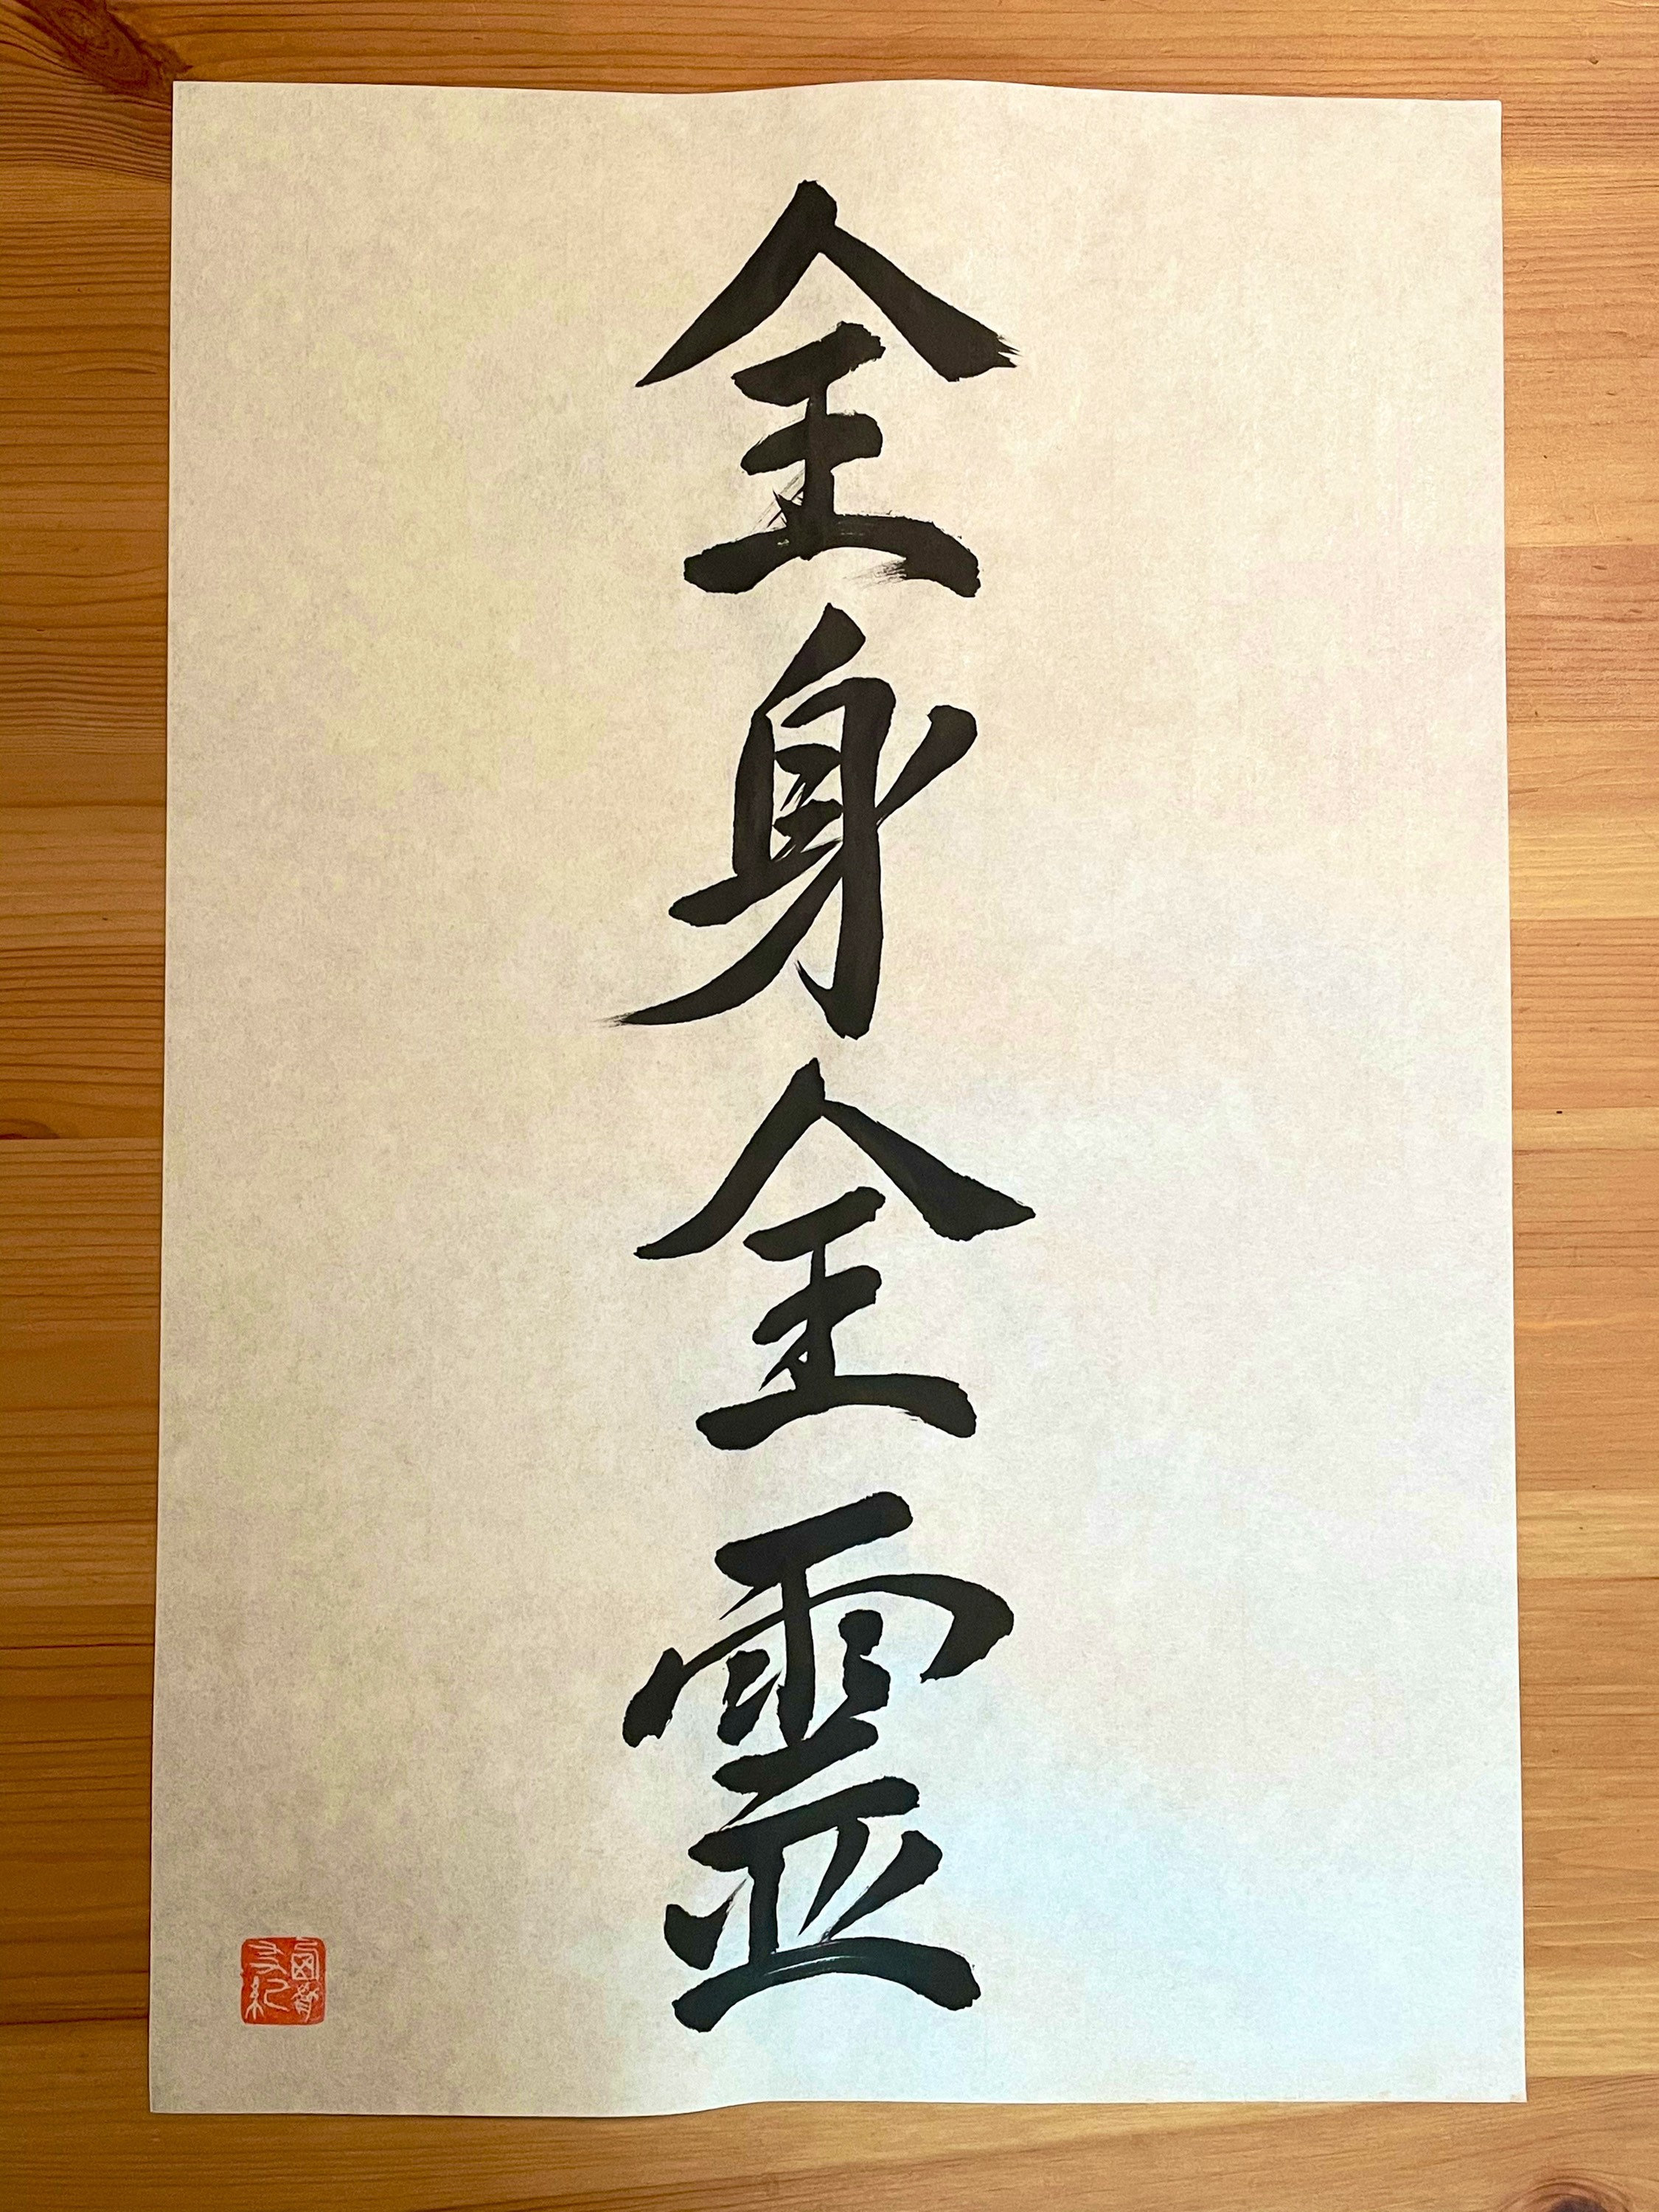 全身全霊